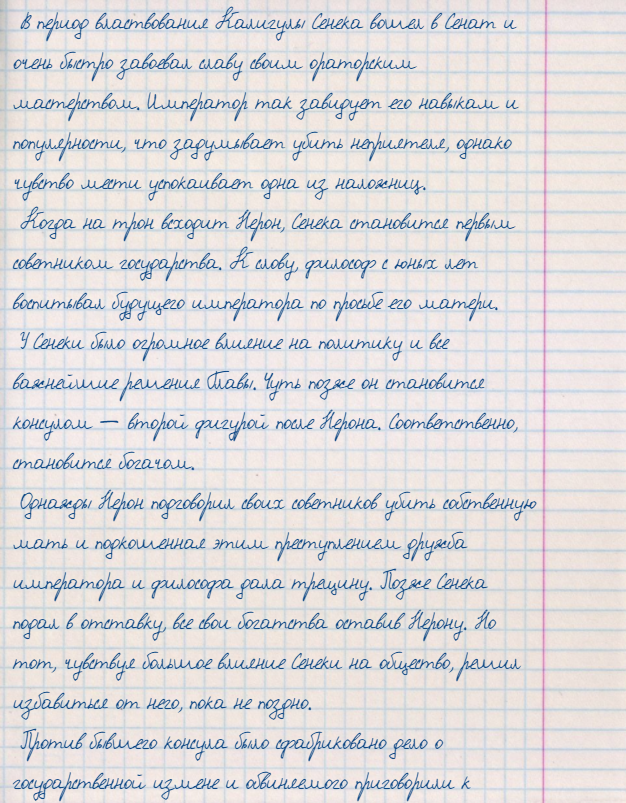 В период властвования Калигулы Сенека вошел в Сенат и
очень быстро завоевал славу своим ораторским
мастерством. Император так завидует его навыкам и
популярности, что задумывает убить неприятеля, однако
чувство мести успокаивает одна из наложниц.
Когда на трон всходит Нерон, Сенека становится первым
советником государства. К слову, философ с юных лет
воспитывал будущего императора по просьбе его матери.
У Сенеки было огромное влияние на политику и все
важнейшие решения Главы. Чуть позже он становится
консулом — второй фигурой после Нерона. Соответственно,
становится богачом.
Однажды Нерон подговорил своих советников убить собственную
мать и подкошенная этим преступлением дружба
императора и философа дала трещину. Позже Сенека
подал в отставку, все свои богатства оставив Нерону. Но
тот, чувствуя большое влияние Сенеки на общество, решил
избавиться от него, пока не поздно.
Против бывшего консула было сфабриковано дело о
государственной измене и обвиняемого приговорили к